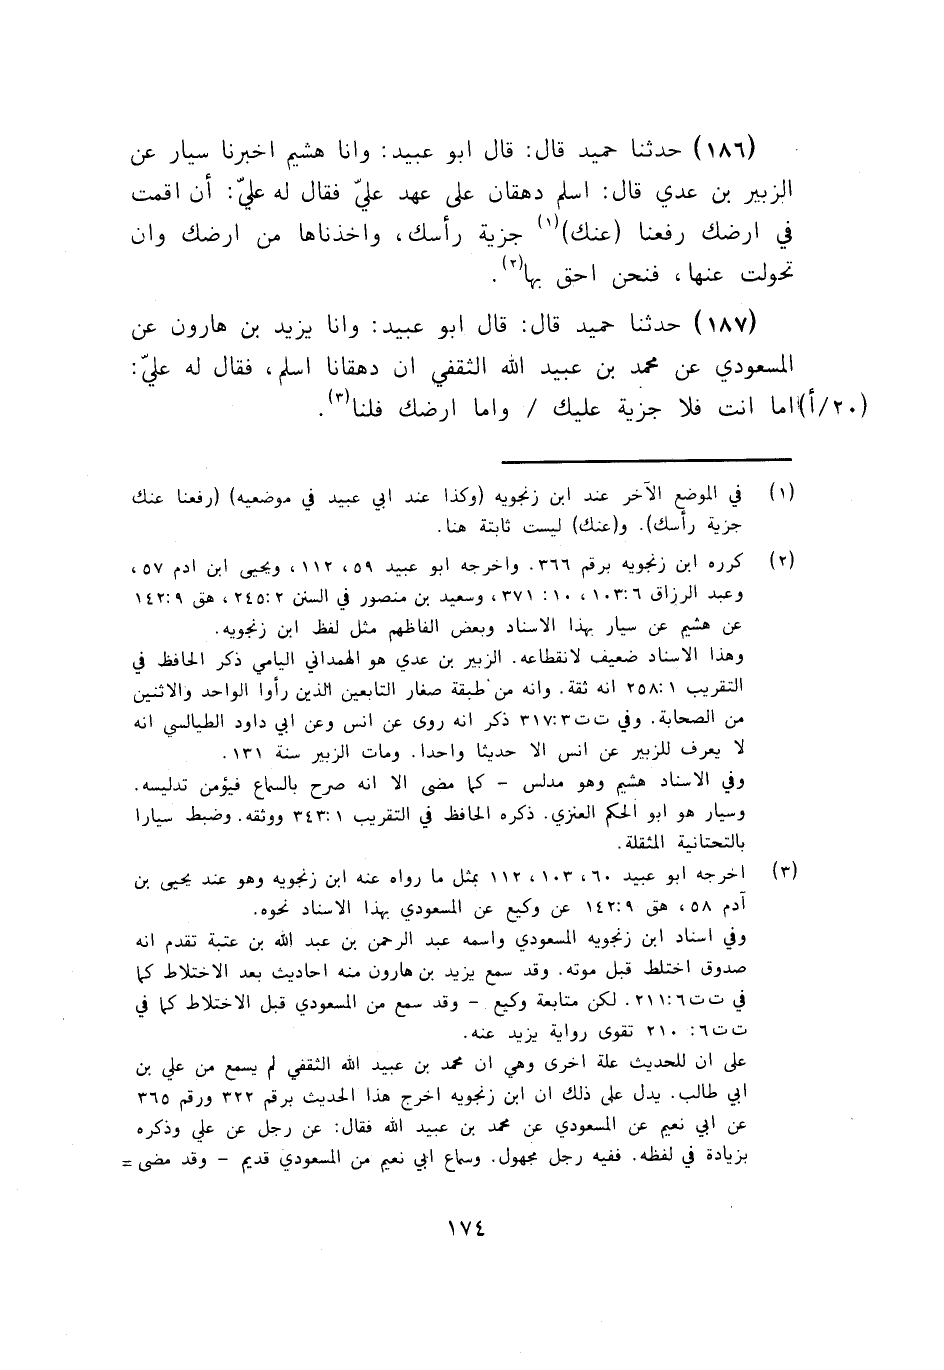 (١٨٦) حدثنا حميد قال: قال ابو عبيد: وانا هشيم اخبرنا سيار عن
الزبير بن عدي قال: اسلم دهقان على عهد عليّ فقال له عليّ: أن اقمت
في ارضك رفعنا (عنك)(١) جزية رأسك، واخذناها من ارضك وان
تحولت عنها، فنحن احق بها(٢).
(١٨٧) حدثنا حميد قال: قال ابو عبيد: وانا يزيد بن هارون عن
المسعودي عن محمد بن عبيد الله الثقفي ان دهقانا اسلم، فقال له عليّ:
(٢٠/أ) اما انت فلا جزية عليك / واما ارضك فلنا(٣).
(١) في الموضع الآخر عند ابن زنجويه (وكذا عند ابي عبيد في موضعيه) (رفعنا عنك
جزية رأسك). و(عنك) ليست ثابتة هنا.
(٢) كرره ابن زنجويه برقم ٣٦٦. واخرجه ابو عبيد ٥٩، ١١٢، ويحيى ابن ادم ٥٧،
وعبد الرزاق ٦:١٠٣، ١٠: ٣٧١، وسعيد بن منصور في السنن ٢:٢٤٥، هق ٩:١٤٢
عن هشيم عن سيار بهذا الاسناد وبعض الفاظهم مثل لفظ ابن زنجويه.
وهذا الاسناد ضعيف لانقطاعه. الزبير بن عدي هو الهمداني اليامي ذكر الحافظ في
التقريب ١:٢٥٨ انه ثقة. وانه من طبقة صغار التابعين الذين رأوا الواحد والاثنين
من الصحابة. وفي ت ت ٣:٣١٧ ذكر انه روى عن انس وعن ابي داود الطيالسي انه
لا يعرف للزبير عن انس الا حديثا واحدا. ومات الزبير سنة ١٣١.
وفي الاسناد هشيم وهو مدلس - كما مضى الا انه صرح بالسماع فيؤمن تدليسه.
وسيار هو ابو الحكم العنزي. ذكره الحافظ في التقريب ١:٣٤٣ ووثقه. وضبط سيارا
بالتحتانية المثقلة.
(٣) اخرجه ابو عبيد ٦٠، ١٠٣، ١١٢ بمثل ما رواه عنه ابن زنجويه وهو عند يحيى بن
آدم ٥٨، هق ٩:١٤٢ عن وكيع عن المسعودي بهذا الاسناد نحوه.
وفي اسناد ابن زنجويه المسعودي واسمه عبد الرحمن بن عبد الله بن عتبة تقدم انه
صدوق اختلط قبل موته. وقد سمع يزيد بن هارون منه احاديث بعد الاختلاط كما
في ت ت ٦:٢١١. لكن متابعة وكيع - وقد سمع من المسعودي قبل الاختلاط كما في
ت ت ٦: ٢١٠ تقوى رواية يزيد عنه.
على ان للحديث علة اخرى وهي ان محمد بن عبيد الله الثقفي لم يسمع من علي بن
ابي طالب. يدل على ذلك ان ابن زنجويه اخرج هذا الحديث برقم ٣٢٢ ورقم ٣٦٥
عن ابي نعيم عن المسعودي عن محمد بن عبيد الله فقال: عن رجل عن علي وذكره
بزيادة في لفظه. ففيه رجل مجهول. وسماع ابي نعيم من المسعودي قديم - وقد مضى =
١٧٤